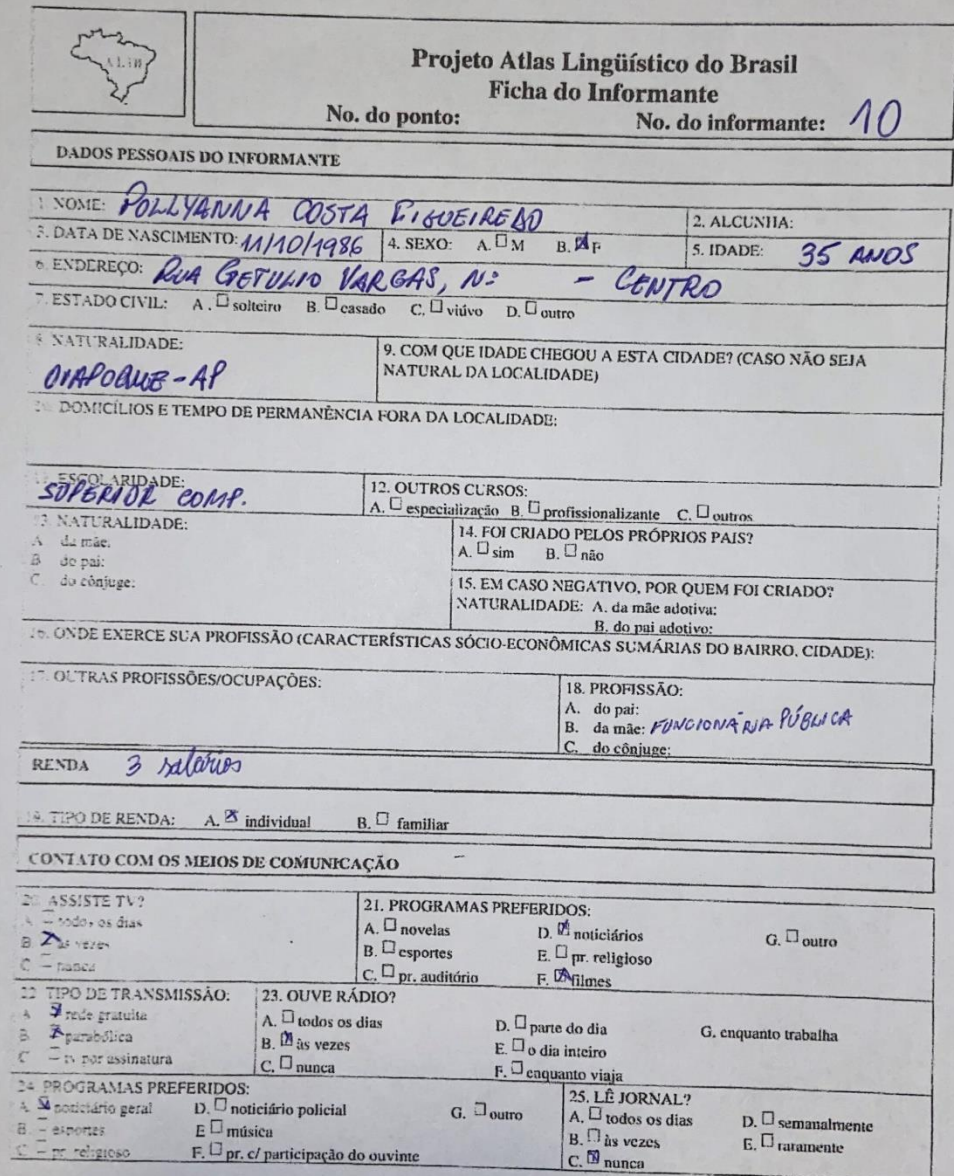 ALiB
Projeto Atlas Lingüístico do Brasil
Ficha do Informante
No. do ponto: No. do informante: 10
DADOS PESSOAIS DO INFORMANTE
1. NOME: POLLYANNA COSTA FIGUEIREDO
2. ALCUNHA:
3. DATA DE NASCIMENTO: 11/10/1986
4. SEXO: A. ☐ M B. ☒ F
5. IDADE: 35 ANOS
6. ENDEREÇO: RUA GETULIO VARGAS, Nº - CENTRO
7. ESTADO CIVIL: A. ☐ solteiro B. ☐ casado C. ☐ viúvo D. ☐ outro
8. NATURALIDADE:
OIAPOQUE-AP
9. COM QUE IDADE CHEGOU A ESTA CIDADE? (CASO NÃO SEJA
NATURAL DA LOCALIDADE)
10. DOMICÍLIOS E TEMPO DE PERMANÊNCIA FORA DA LOCALIDADE:
11. ESCOLARIDADE:
SUPERIOR COMP.
12. OUTROS CURSOS:
A. ☐ especialização B. ☐ profissionalizante C. ☐ outros
13. NATURALIDADE:
A. da mãe:
B. do pai:
C. do cônjuge:
14. FOI CRIADO PELOS PRÓPRIOS PAIS?
A. ☐ sim B. ☐ não
15. EM CASO NEGATIVO, POR QUEM FOI CRIADO?
NATURALIDADE: A. da mãe adotiva:
B. do pai adotivo:
16. ONDE EXERCE SUA PROFISSÃO (CARACTERÍSTICAS SÓCIO-ECONÔMICAS SUMÁRIAS DO BAIRRO, CIDADE):
17. OUTRAS PROFISSÕES/OCUPAÇÕES:
18. PROFISSÃO:
A. do pai:
B. da mãe: FUNCIONÁRIA PÚBLICA
C. do cônjuge:
RENDA 3 salários
19. TIPO DE RENDA: A. ☒ individual B. ☐ familiar
CONTATO COM OS MEIOS DE COMUNICAÇÃO
20. ASSISTE TV?
A. ☐ todos os dias
B. ☒ às vezes
C. ☐ nunca
21. PROGRAMAS PREFERIDOS:
A. ☐ novelas D. ☒ noticiários G. ☐ outro
B. ☐ esportes E. ☐ pr. religioso
C. ☐ pr. auditório F. ☒ filmes
22. TIPO DE TRANSMISSÃO:
A. ☒ rede gratuita
B. ☒ parabólica
C. ☐ tv por assinatura
23. OUVE RÁDIO?
A. ☐ todos os dias D. ☐ parte do dia G. enquanto trabalha
B. ☒ às vezes E. ☐ o dia inteiro
C. ☐ nunca F. ☐ enquanto viaja
24. PROGRAMAS PREFERIDOS:
A. ☒ noticiário geral D. ☐ noticiário policial G. ☐ outro
B. ☐ esportes E ☐ música
C. ☐ pr. religioso F. ☐ pr. c/ participação do ouvinte
25. LÊ JORNAL?
A. ☐ todos os dias D. ☐ semanalmente
B. ☐ às vezes E. ☐ raramente
C. ☒ nunca